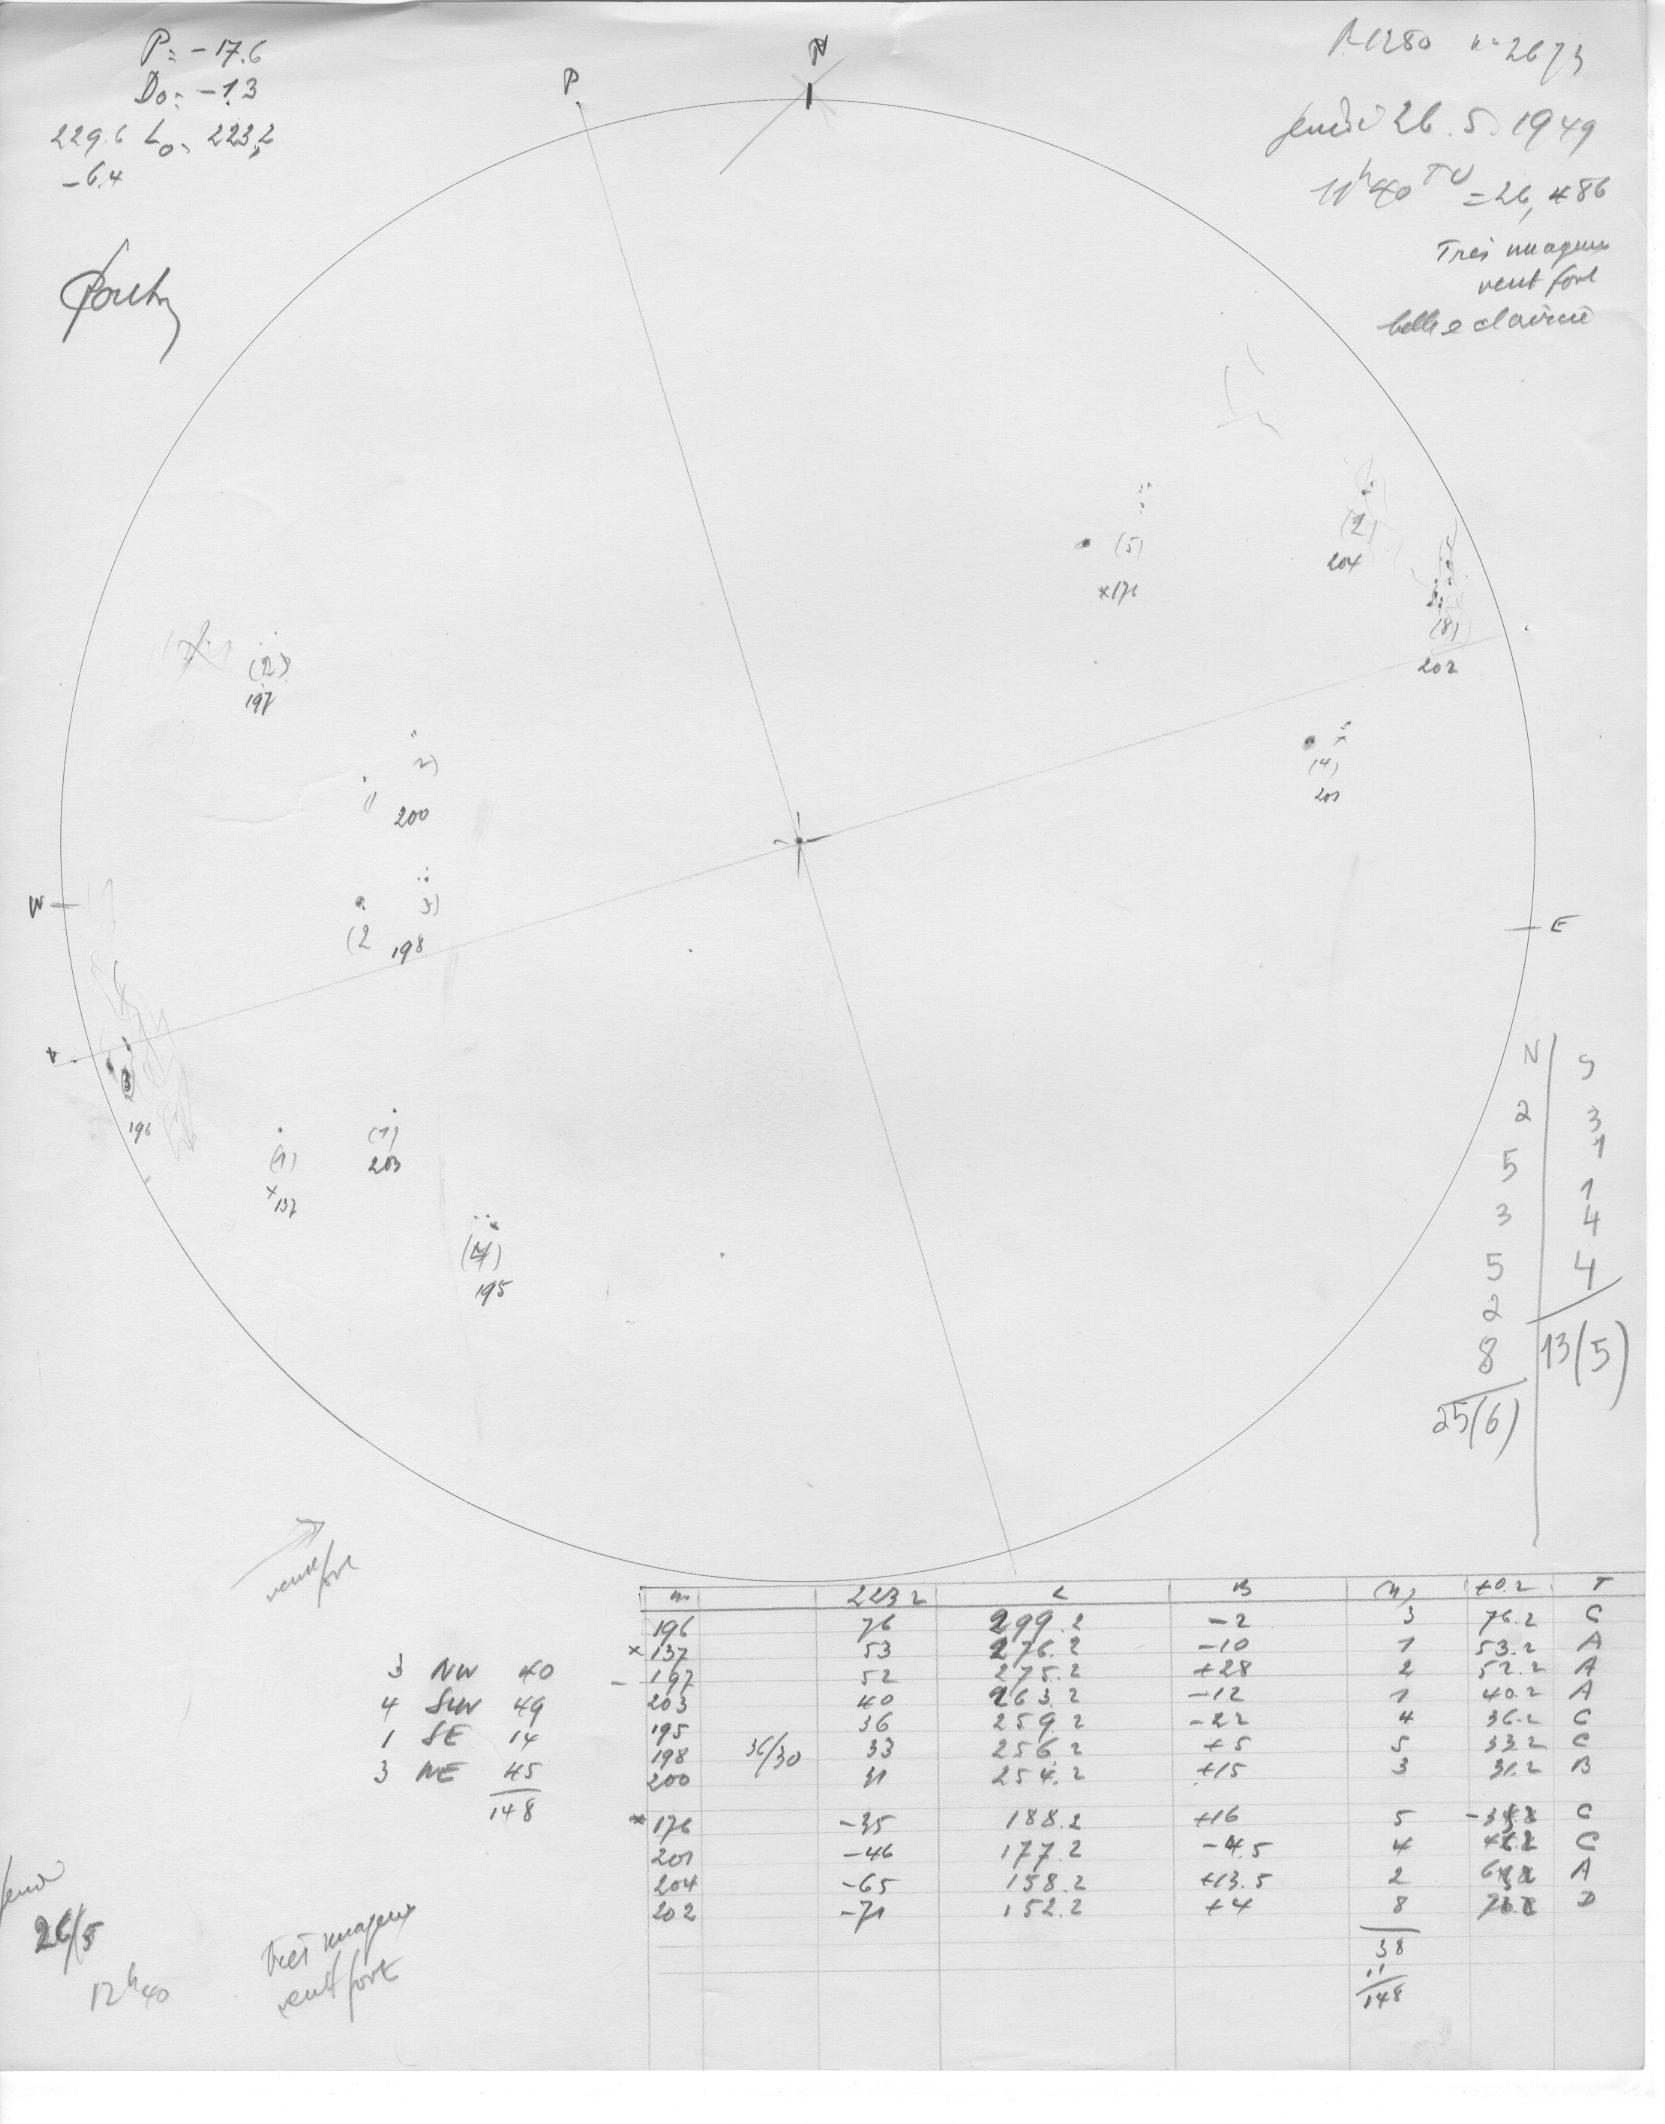 P = -17.6
Do = -1.3
229.6 Lo = 223,2
-6.4
P
N
n° 2673
jeudi 26.5.1949
11h40 TU = 26,486
Très nuageux
vent fort
belle éclaircie
(5)
×176
(2)
204
(8)
202
(2)
197
2)
(1
200
(4)
201
W
3)
(2
198
E
3
196
(1)
×137
(1)
203
(4)
195
N | S
2 | 3
5 | 1
3 | 1
5 | 4
2 | 4
8 | 13(5)
25(6)
vent fort
n 223 2 L B (n) +0.2 T
196 76 299.2 -2 3 76.2 C
×137 53 276.2 -10 1 53.2 A
197 52 275.2 +28 2 52.2 A
203 40 263.2 -12 1 40.2 A
195 36 259.2 -22 4 36.2 C
198 36/30 33 256.2 +5 5 33.2 C
200 31 254.2 +15 3 31.2 B
×176 -35 188.2 +16 5 C
201 -46 177.2 -4.5 4 C
204 -65 158.2 +13.5 2 A
202 -71 152.2 +4 8 D
38
11
148
3 NW 40
4 SW 49
1 SE 14
3 NE 45
148
jeudi
26/5
12h40
très nuageux
vent fort